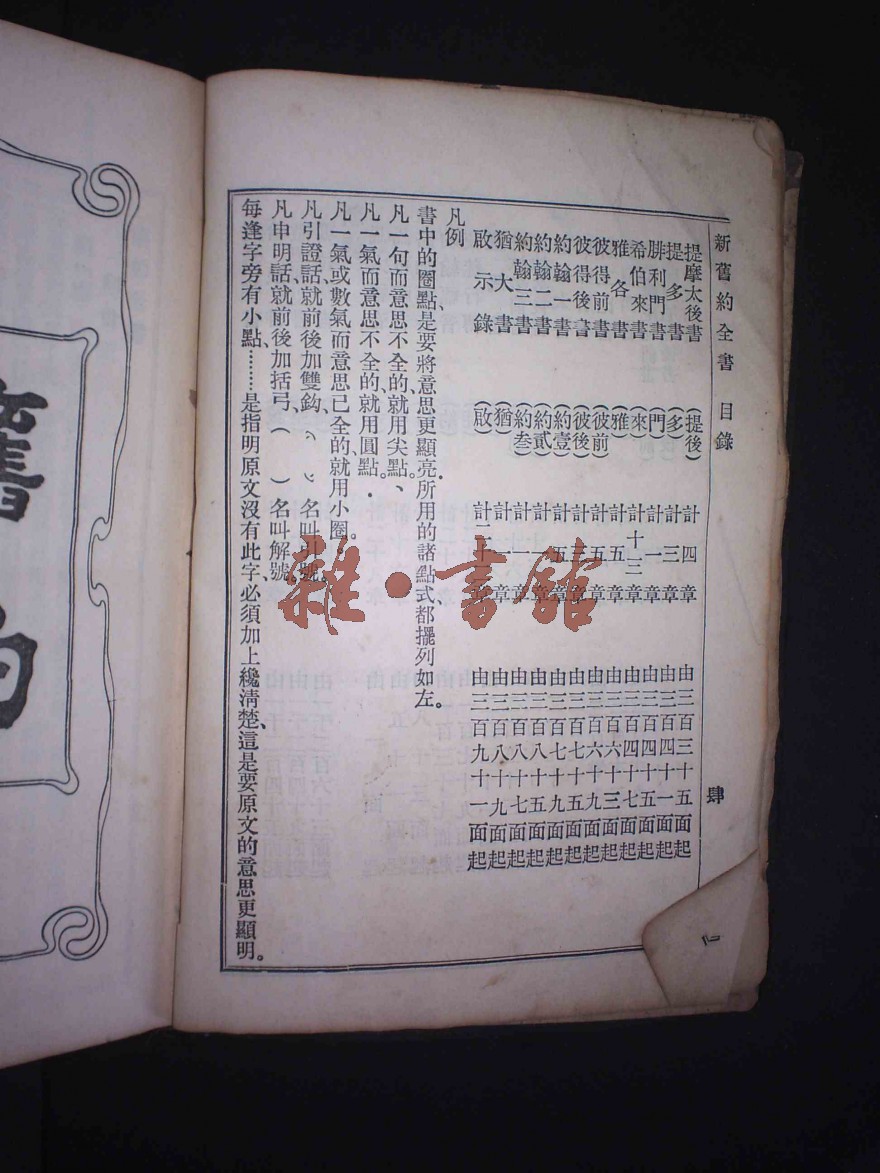 新舊約全書 目錄 肆
提摩太後書 (提後) 計四章 由三百三十五面起
提多書 (多) 計三章 由三百四十一面起
腓利門書 (門) 計一章 由三百四十五面起
希伯來書 (來) 計十三章 由三百四十七面起
雅各書 (雅) 計五章 由三百六十三面起
彼得前書 (彼前) 計五章 由三百六十九面起
彼得後書 (彼後) 計三章 由三百七十五面起
約翰一書 (約壹) 計五章 由三百七十九面起
約翰二書 (約貳) 計一章 由三百八十五面起
約翰三書 (約叁) 計一章 由三百八十七面起
猶大書 (猶) 計一章 由三百八十九面起
啟示錄 (啟) 計二十二章 由三百九十一面起
凡例、
書中的圈點是要將意思更顯亮.所用的諸點式都擺列如左。
凡一句而意思不全的、就用尖點。、
凡一氣而意思不全的、就用圓點。.
凡一氣或數氣而意思已全的、就用小圈。。
凡引證話、就前後加雙鈎、〈 〉名叫引號、
凡申明話、就前後加括弓、( )名叫解號、
每逢字旁有小點………是指明原文沒有此字、必須加上纔清楚、這是要原文的意思更顯明。
雜·書館